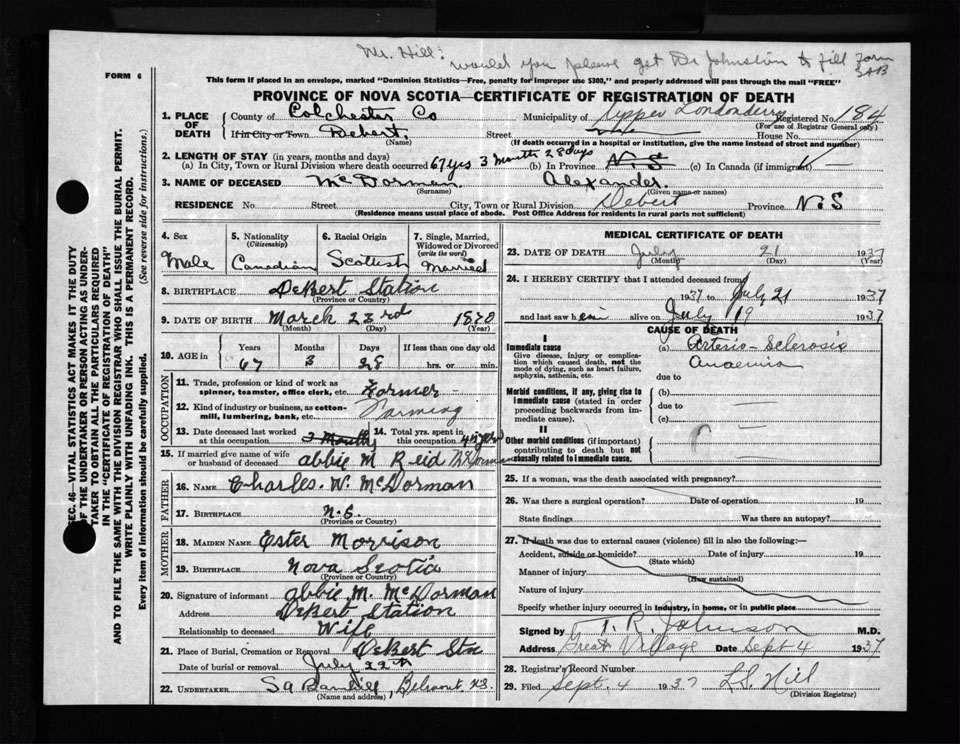 Mr. Hill:
would you please get Dr Johnston to fill form
FORM 6
This form if placed in an envelope, marked "Dominion Statistics—Free, penalty for improper use $300," and properly addressed will pass through the mail "FREE"
PROVINCE OF NOVA SCOTIA—CERTIFICATE OF REGISTRATION OF DEATH
SEC. 46—VITAL STATISTICS ACT MAKES IT THE DUTY
OF THE UNDERTAKER OR PERSON ACTING AS UNDER-
TAKER TO OBTAIN ALL THE PARTICULARS REQUIRED
IN THE "CERTIFICATE OF REGISTRATION OF DEATH"
AND TO FILE THE SAME WITH THE DIVISION REGISTRAR WHO SHALL ISSUE THE BURIAL PERMIT.
WRITE PLAINLY WITH UNFADING INK. THIS IS A PERMANENT RECORD.
Every item of Information should be carefully supplied. (See reverse side for instructions.)
1. PLACE OF DEATH
County of Colchester Co Municipality of Upper Londonderry Registered No. 184
(For use of Registrar General only)
If in City or Town Debert. Street House No.
(Name) (If death occurred in a hospital or institution, give the name instead of street and number)
2. LENGTH OF STAY (in years, months and days)
(a) In City, Town or Rural Division where death occurred 67 yrs 3 Month 28 days (b) In Province N-S (c) In Canada (if immigrant)
3. NAME OF DECEASED McDorman. Alexander.
(Surname) (Given name or names)
RESIDENCE No. Street City, Town or Rural Division Debert Province N.S
(Residence means usual place of abode. Post Office Address for residents in rural parts not sufficient)
4. Sex Male
5. Nationality (Citizenship) Canadian
6. Racial Origin Scottish
7. Single, Married, Widowed or Divorced (write the word) Married
8. BIRTHPLACE DeBert Station
(Province or Country)
9. DATE OF BIRTH March 23rd 1870
(Month) (Day) (Year)
10. AGE in Years Months Days If less than one day
67 3 28 hrs. or min.
OCCUPATION
11. Trade, profession or kind of work as spinner, teamster, office clerk, etc. Farmer
12. Kind of industry or business, as cotton-mill, lumbering, bank, etc. Farming
13. Date deceased last worked at this occupation 3 Months
14. Total yrs. spent in this occupation
15. If married give name of wife or husband of deceased Abbie M Reid McDorman
FATHER
16. NAME Charles. W. McDorman
17. BIRTHPLACE N.S.
(Province or Country)
MOTHER
18. MAIDEN NAME Ester Morrison
19. BIRTHPLACE Nova Scotia
(Province or Country)
20. Signature of informant Abbie. M. McDorman
Address DeBert Station
Relationship to deceased Wife
21. Place of Burial, Cremation or Removal DeBert Stn
Date of burial or removal July 22nd
22. UNDERTAKER Belmont NS.
(Name and address)
MEDICAL CERTIFICATE OF DEATH
23. DATE OF DEATH July 21 1937
(Month) (Day) (Year)
24. I HEREBY CERTIFY that I attended deceased from
1937 to July 21 1937
and last saw him alive on July 19 1937
CAUSE OF DEATH
I
Immediate cause
Give disease, injury or complication which caused death, not the mode of dying, such as heart failure, asphyxia, asthenia, etc.
(a) Arterio-Sclerosis
Anaemia
due to
Morbid conditions, if any, giving rise to immediate cause (stated in order proceeding backwards from immediate cause).
(b)
due to
(c)
II
Other morbid conditions (if important) contributing to death but not causally related to immediate cause.
25. If a woman, was the death associated with pregnancy?
26. Was there a surgical operation? Date of operation 19
State findings Was there an autopsy?
27. If death was due to external causes (violence) fill in also the following:—
Accident, suicide or homicide? Date of injury 19
(State which)
Manner of injury
(How sustained)
Nature of injury
Specify whether injury occurred in industry, in home, or in public place
Signed by T. R. Johnson M.D.
Address Great Village Date Sept 4 1937
28. Registrar's Record Number
29. Filed Sept. 4 1937 L.S. Hill
(Division Registrar)